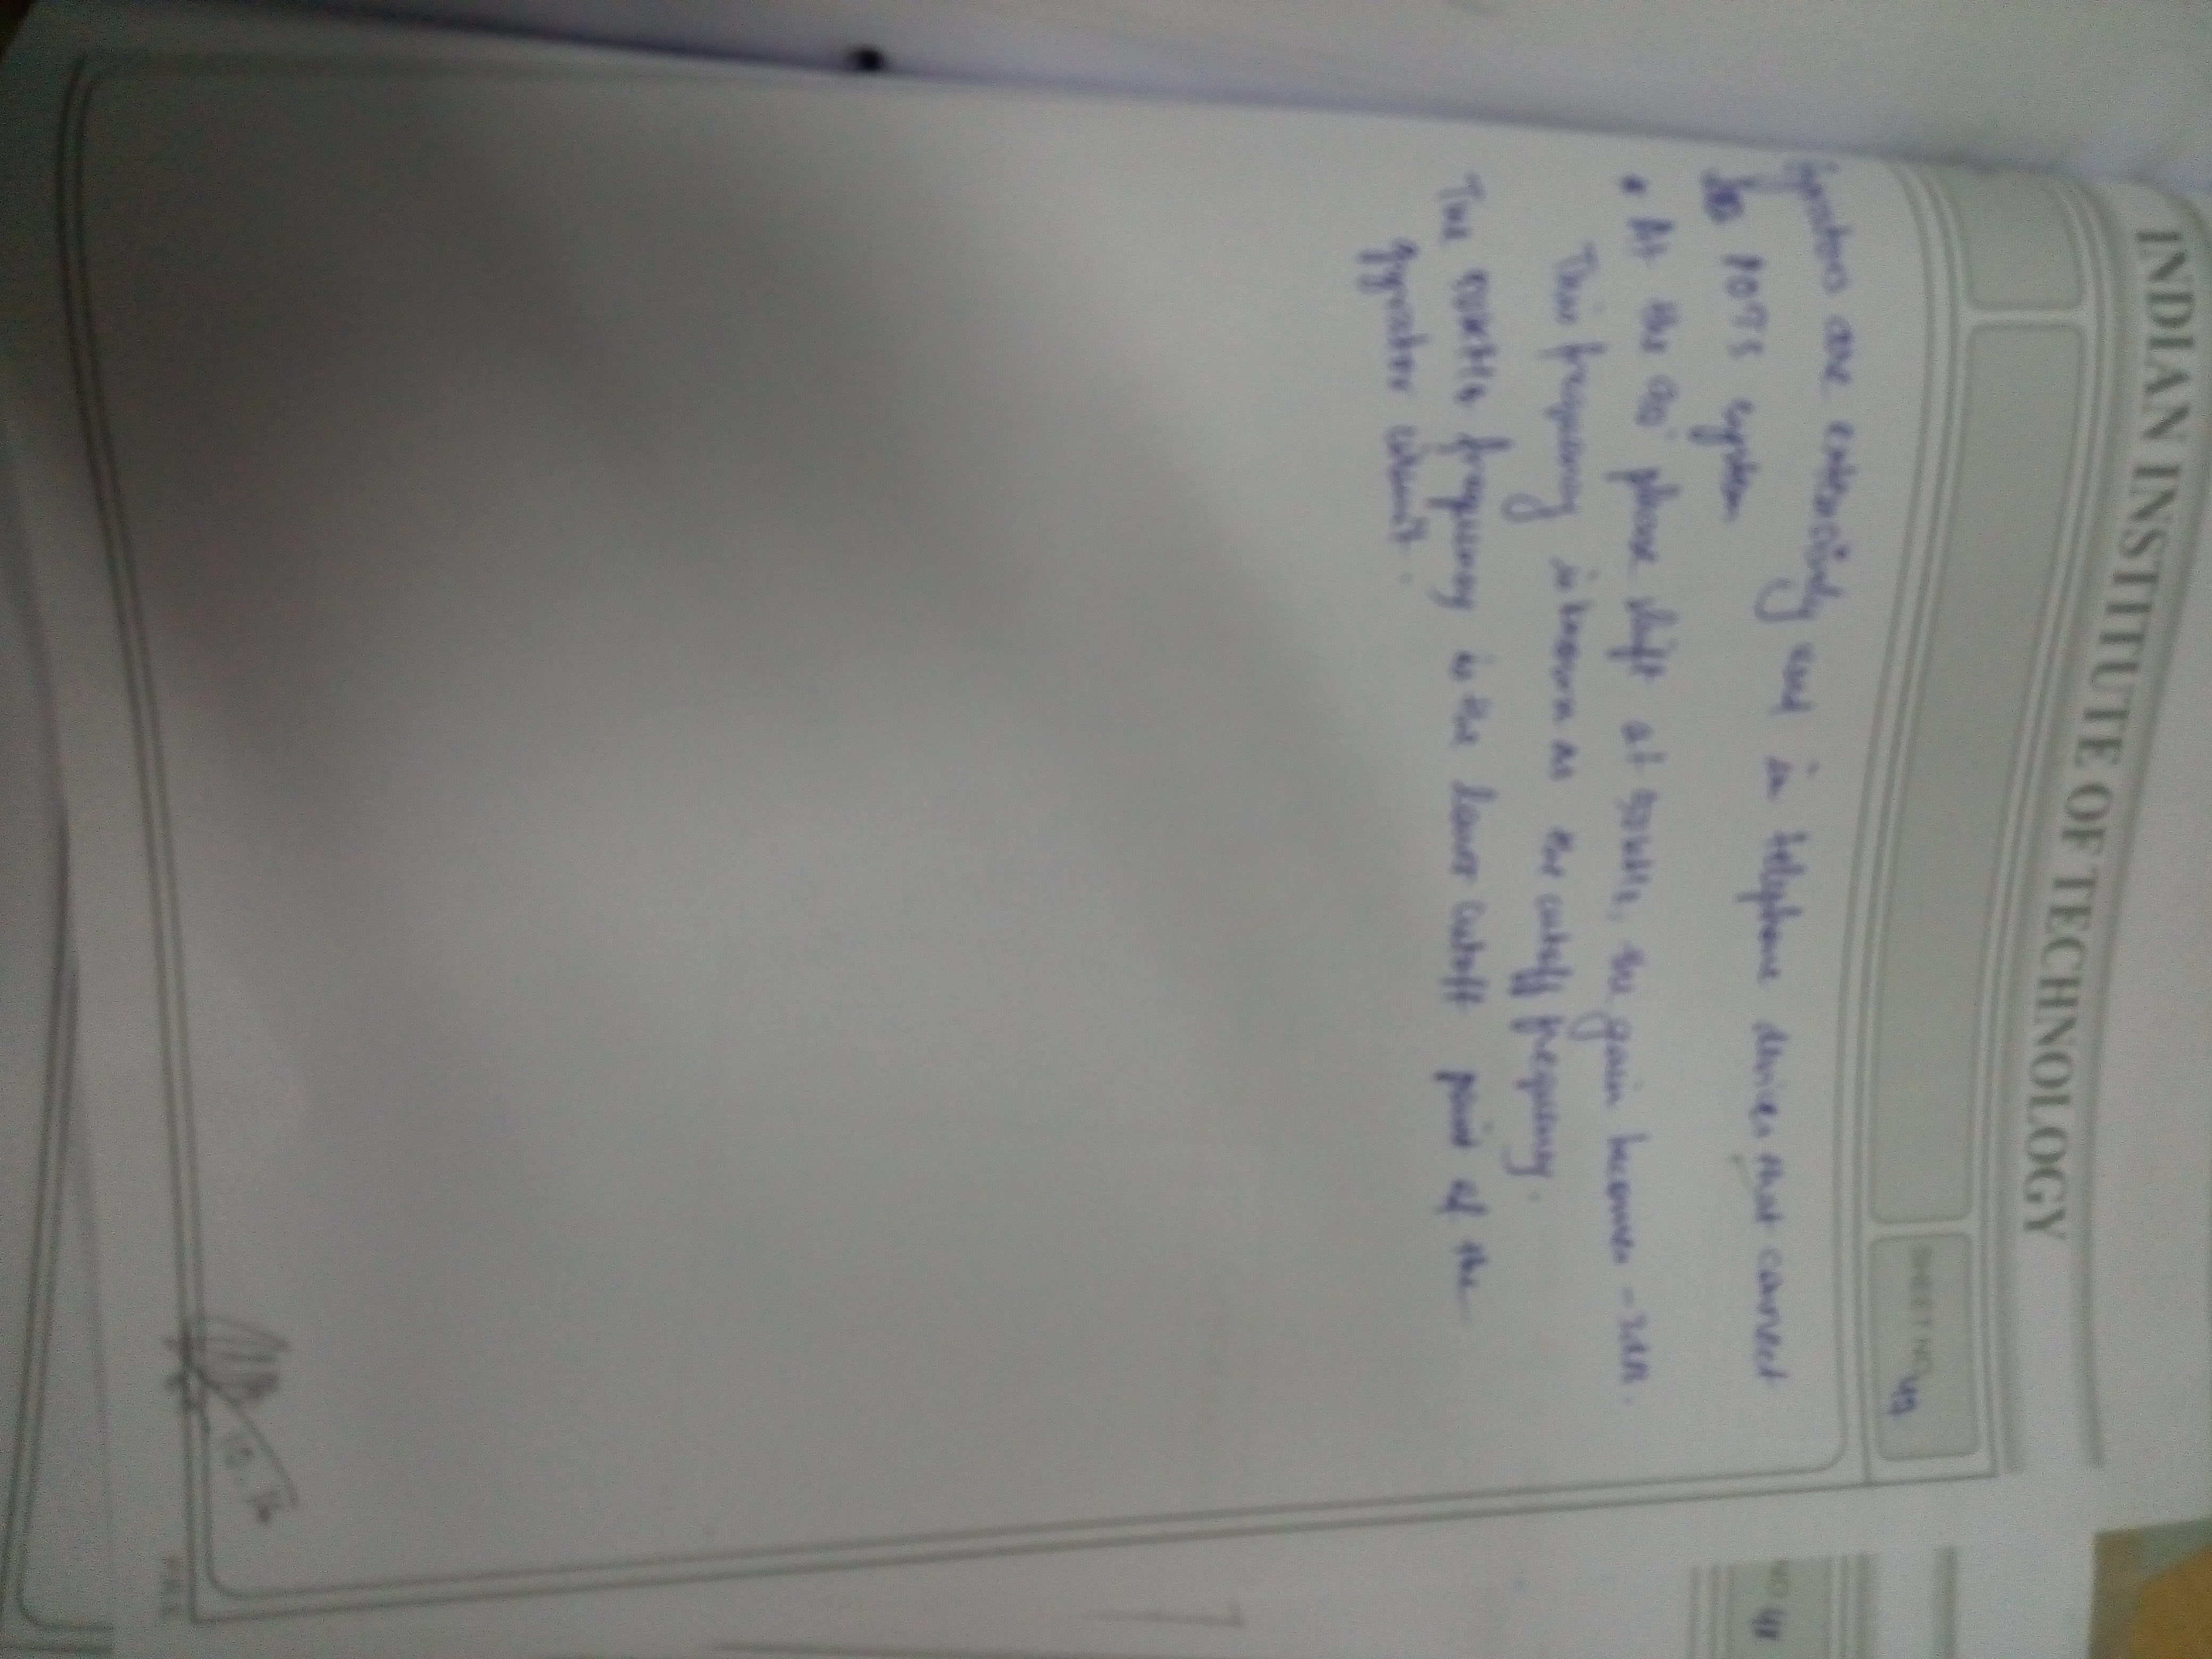 INDIAN INSTITUTE OF TECHNOLOGY
SHEET NO. 49
Gyrators are extensively used in telephone devices that connect
to POTS system
• At the 90° phase shift at 50kHz, the gain becomes -3dB.
This frequency is known as the cutoff frequency.
The 50kHz frequency is the lower cutoff point of the
gyrator circuit.
NO. 48